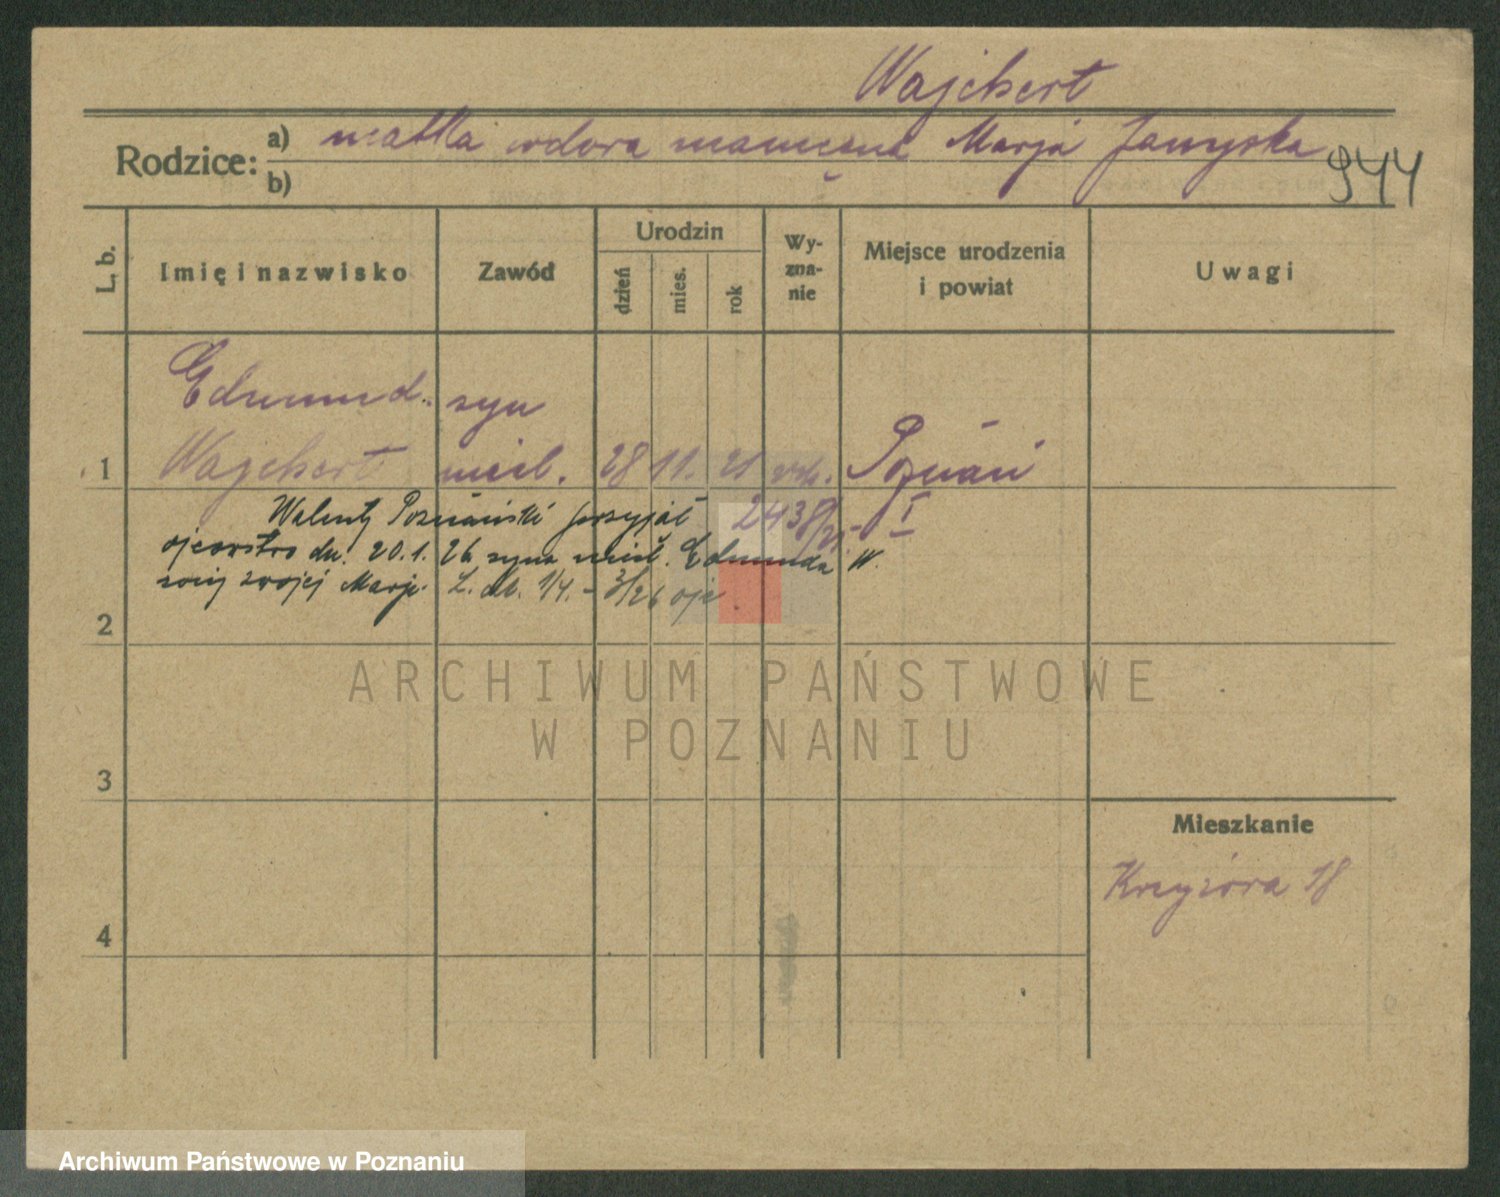 Wajchert
Rodzice:
a) matka wdowa zamężna Marja
b)
944
L. b.
Imię i nazwisko
Zawód
Urodzin
dzień
mies.
rok
Wy-
zna-
nie
Miejsce urodzenia
i powiat
Uwagi
Edmund syn
1 Wajchert nieśl. 28 11. 21 Poznań
Walenty Poznański przyjął 2438/21 I
ojcowstwo dn. 20.1.26 syna nieśl. Edmunda W.
żony swojej Marji. L. dz. 1/4. - 3/26
2
ARCHIWUM PAŃSTWOWE
W POZNANIU
3
Mieszkanie
Krzyżowa 18
4
Archiwum Państwowe w Poznaniu